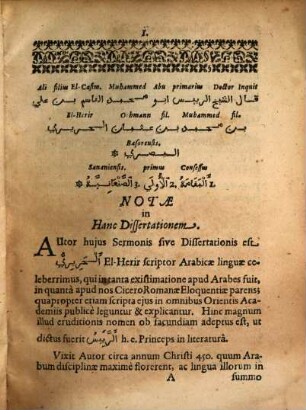 1.
Ali filius El-Casim, Muhammed Abu primarius Doctor Inquit
قال الشيخ الرييس ابو محمد القاسم بن علي
El-Herir Othmann fil. Muhammed fil.
بن محمد بن عثمان الحريري
Basorensis.
البصري
Sananiensis. primus Consessus
1. المقامة 2. الأولى 3. الصنعانية
NOTÆ
in
Hanc Dissertationem.
Autor hujus Sermonis sive Dissertationis est
الحريري El-Herir scriptor Arabicæ linguæ ce-
leberrimus, qui in tanta existimatione apud Arabes fuit,
in quantâ apud nos Cicero Romanæ Eloquentiæ parens:
quapropter etiam scripta ejus in omnibus Orientis Aca-
demiis publicè leguntur & explicantur. Hinc magnum
illud eruditionis nomen ob facundiam adeptus est, ut
dictus fuerit الرييس h. e. Princeps in literaturâ.
Vixit Autor circa annum Christi 450. quum Ara-
bum disciplinæ maximè florerent, ac lingua illorum in
A summo